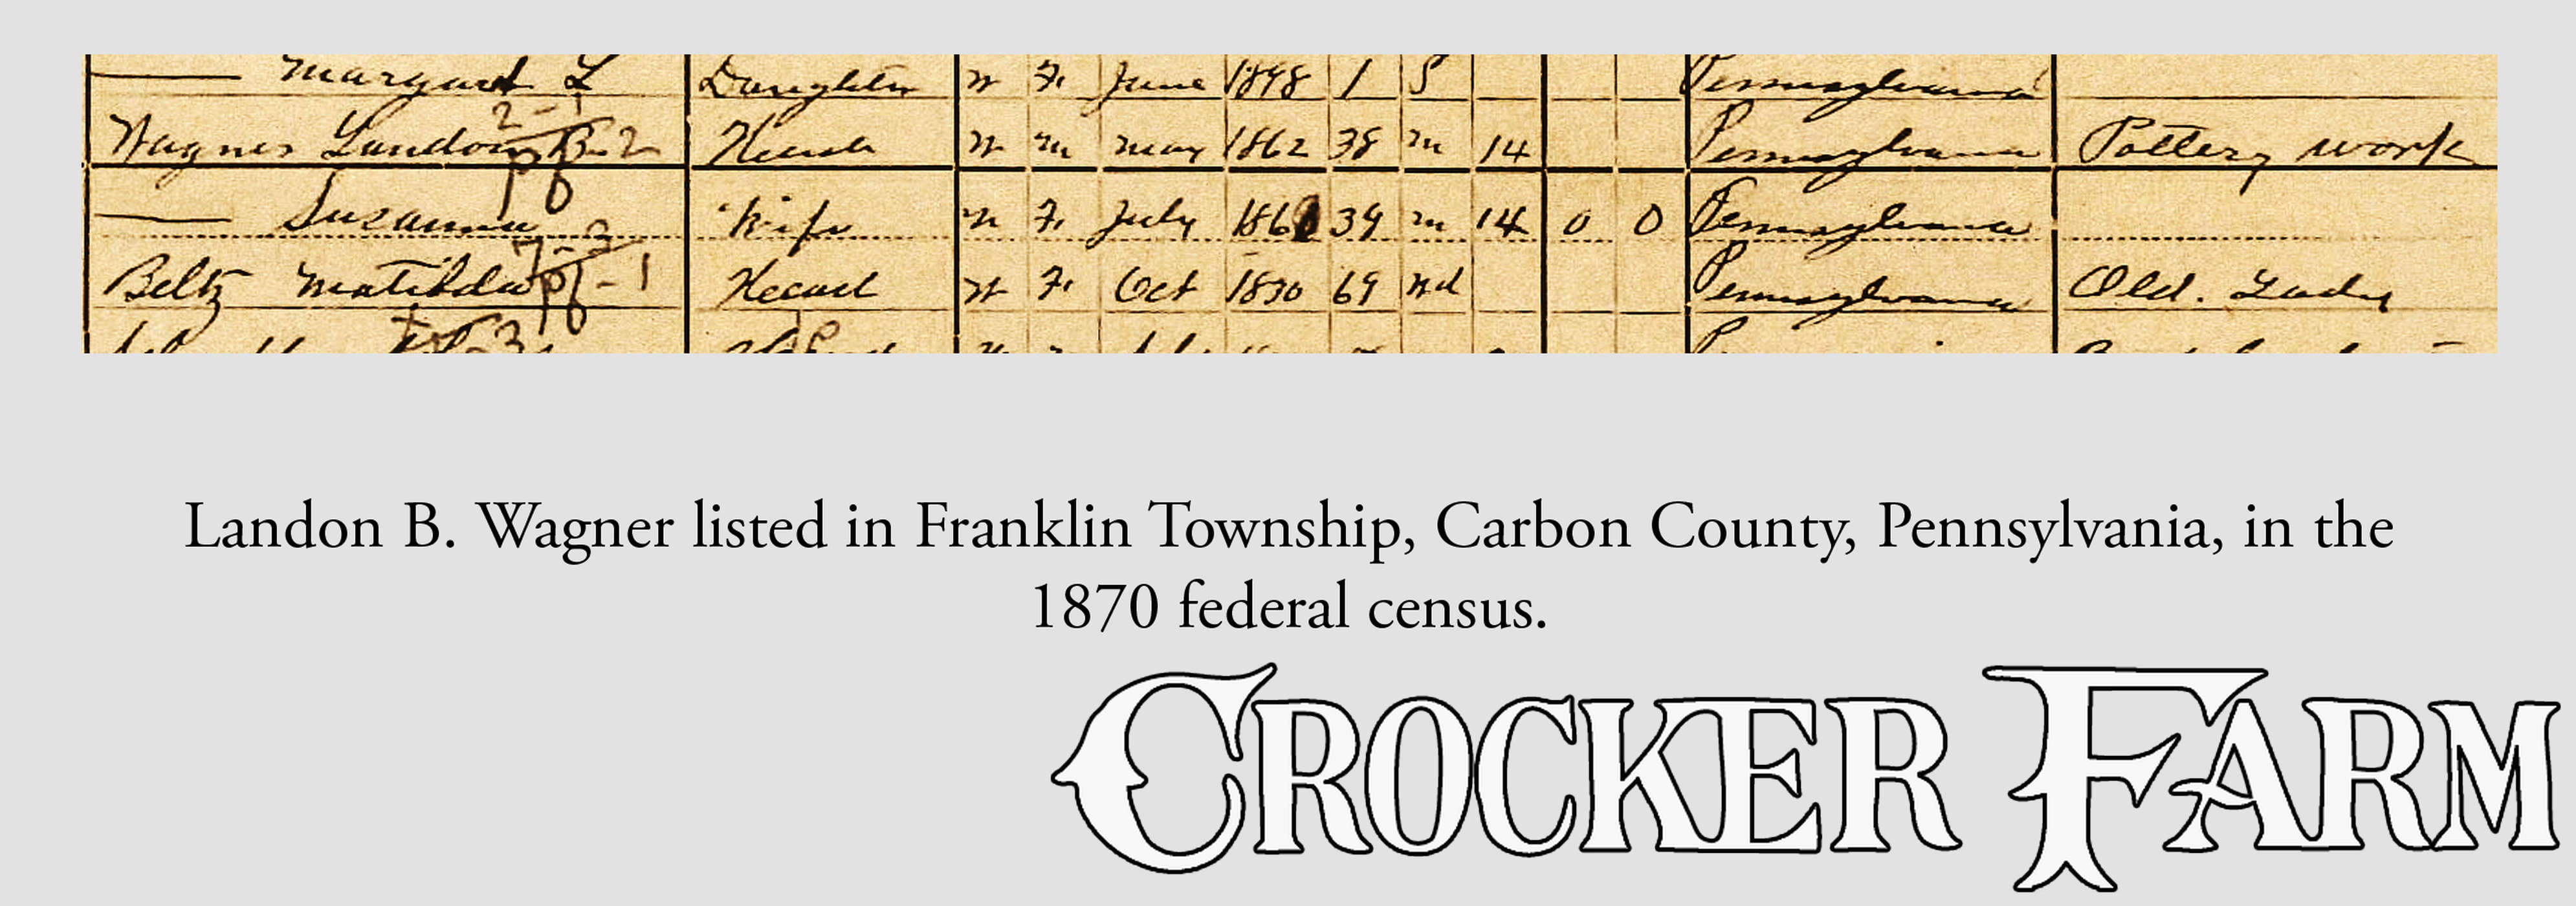 —— Margaret L Daughter W F June 1898 1 S Pennsylvania
2-1
Wagner Landon B-2 Head W M May 1862 38 M 14 Pennsylvania Pottery work
—— Susanna Wife W F July 1860 39 M 14 0 0 Pennsylvania
Beltz Matilda -1 Head W F Oct 1830 69 Wd Pennsylvania Old. Lady
Landon B. Wagner listed in Franklin Township, Carbon County, Pennsylvania, in the
1870 federal census.
CROCKER FARM